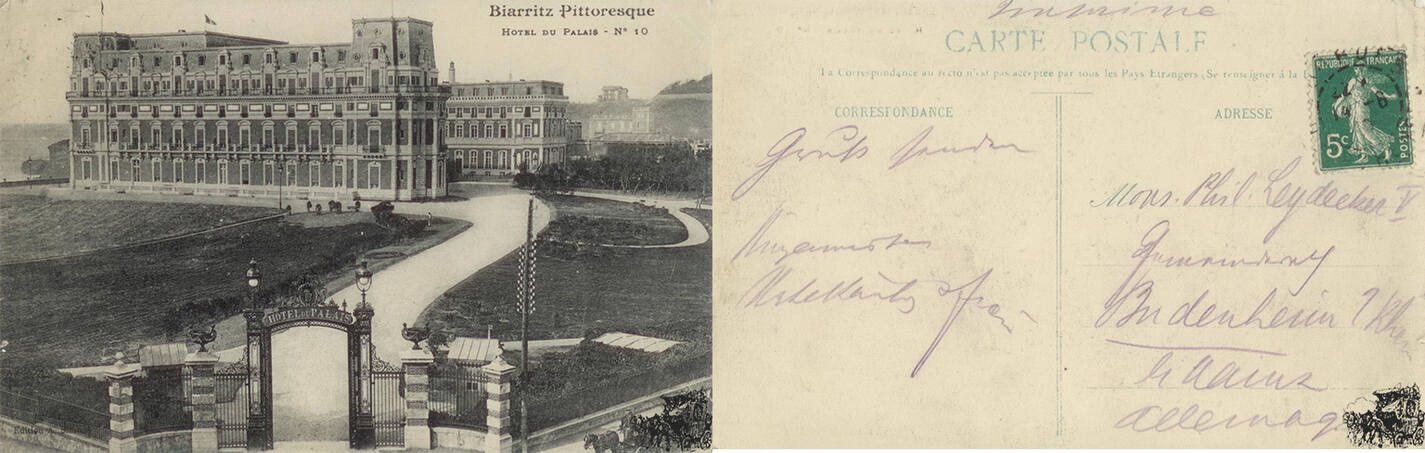 Biarritz Pittoresque
HOTEL DU PALAIS - N° 10
HOTEL DU PALAIS
Edition
Imprimé
CARTE POSTALE
La Correspondance au recto n'est pas acceptée par tous les Pays Etrangers (Se renseigner à la
CORRESPONDANCE
ADRESSE
REPUBLIQUE FRANÇAISE
5c
POSTES
Gruß senden
Mons. Phil. Leydecker V
Gemeinderat
Budenheim
Mainz
Allemag